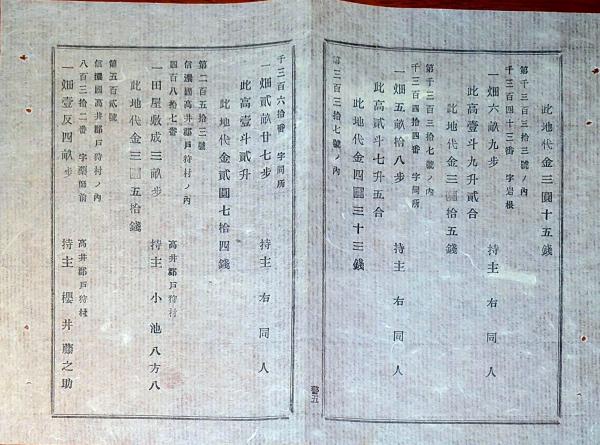 此地代金三圓十五錢
第千三百三拾三號ノ內
千三百四十三番 字岩根
一畑六畝九步 持主 右同人
此高壹斗九升貳合
此地代金三圓拾五錢
第千二百三拾七號ノ內
千三百四拾四番 字同所
一畑五畝拾八步 持主 右同人
此高貳斗七升五合
此地代金四圓三十三錢
第三百三拾七號ノ內
千三百六拾番 字同所
一畑貳畝廿七步 持主 右同人
此高壹斗貳升
此地代金貳圓七拾四錢
第二百五拾三號
信濃國高井郡戶狩村ノ內
四百八拾七番 高井郡戶狩村
一田屋敷成三畝步 持主 小池八方八
此地代金三圓五拾錢
第五百貳號
信濃國高井郡戶狩村ノ內
八百三拾二番 字藥師前 高井郡戶狩村
一畑壹反四畝步 持主 櫻井藤之助